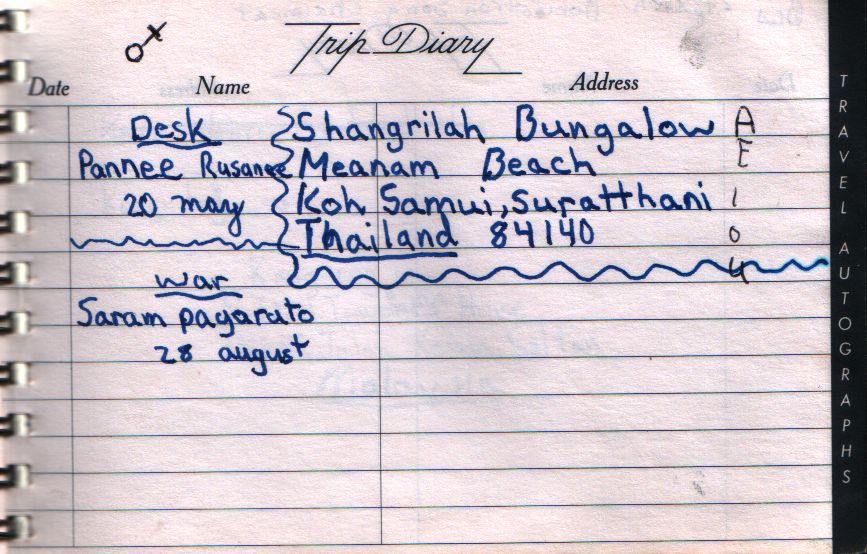 Trip Diary
Date Name Address
Desk
Pannee Rusanee
20 may
Shangrilah Bungalow
Meanam Beach
Koh Samui, Suratthani
Thailand 84140
A
E
I
O
U
War
Saram pagaruto
28 august
TRAVEL AUTOGRAPHS